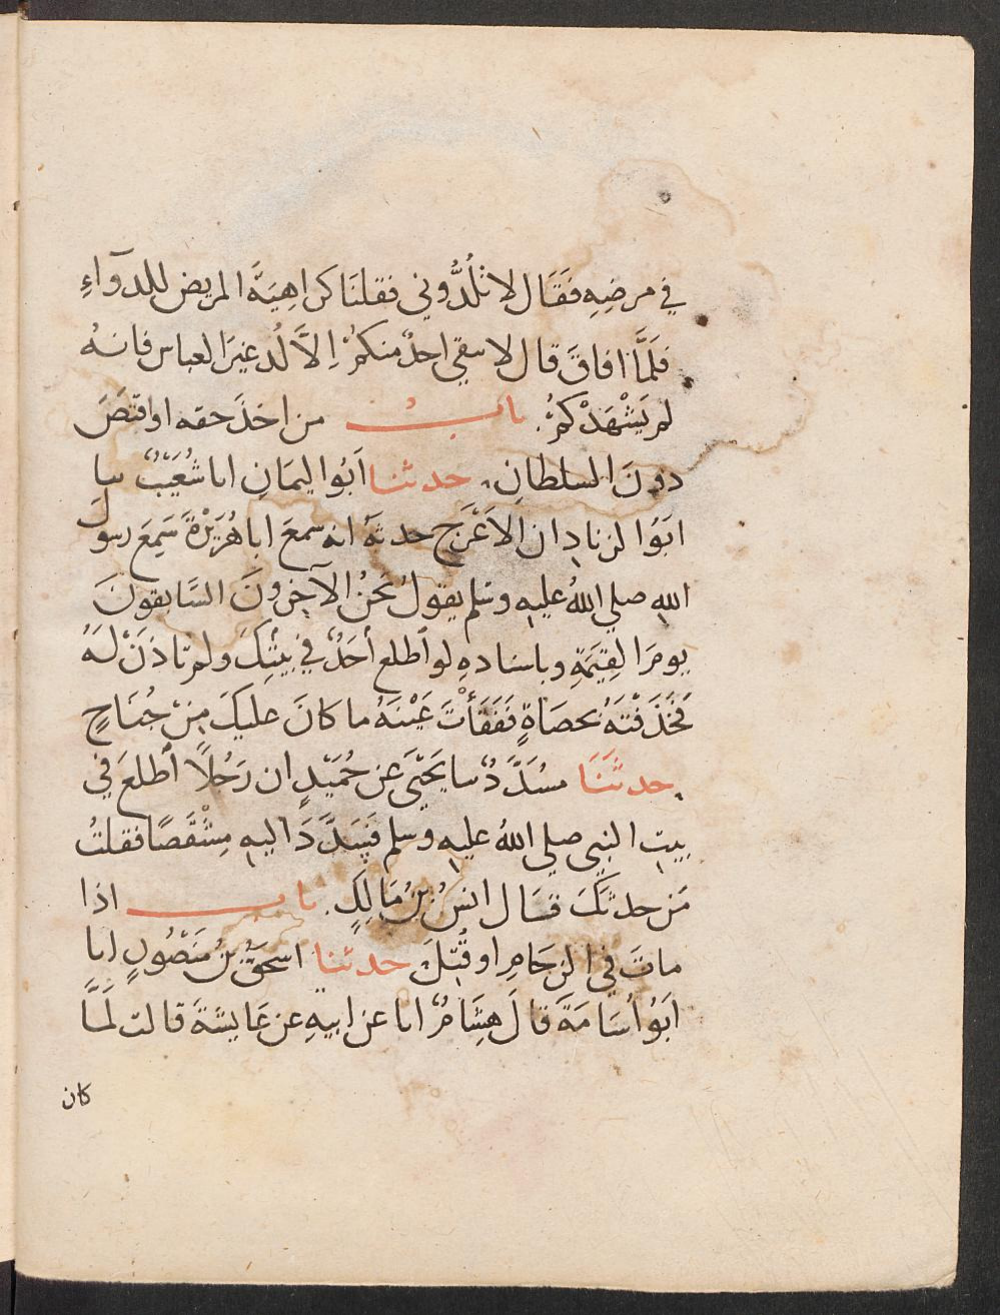 في مرضِهِ فقَقَال لا تلُدُّوني فقلنَا كراهِيَةَ المريض للدوآءِ
فلَمَّا افاقَ قال لا سقي احدٌ منكمْ اِلاَّ لُد غيرَ العباس فانهُ
لم يَشْهَدْكمْ. باب من اخذَ حقه او اقتصَ
دونَ السلطانِ. حدثنا اَبُوا اليمَانِ انا شُعَيْبٌ سا
ابَوُا الزنادِ ان الاَعْرَج حدثهُ انه سمعَ ابا هُرَيْرَةَ سَمِعَ رسولَ
اللهِ صلي اللهُ عليهِ وسَلم يقولُ نحْنُ الآخِرونَ السَّابقونَ
يومَ القِيَمَةِ وباسنادهِ لو اَطلع اَحَدٌ في بيْتِكَ ولم تاذَنْ لَهُ
فخَذَفْتَهُ بحصَاةٍ ففَقَأتَ عَيْنهُ ما كانَ عليكَ مِنْ جُنَاحٍ
حدثنَا مسُدَّدٌ سا يَحْيَى عن حُمَيْدٍ ان رَجُلاً اَطلعَ في
بيتِ النبي صلي اللهُ عليهِ وسلم فسَدَّدَ اليهِ مِشْقَصًا فقلتُ
مَن حدثكَ قال انسُ بْنُ مَالِكٍ. باب اذا
ماتَ في الزحَامِ او قُتِلَ حدثنا اسحَقُ بْنُ مَنصُورٍ انا
ابَوُا اُسَامَةَ قالَ هِشَامٌ انا عن ابيهِ عن عَايشةَ قالت لَمَّا
كان